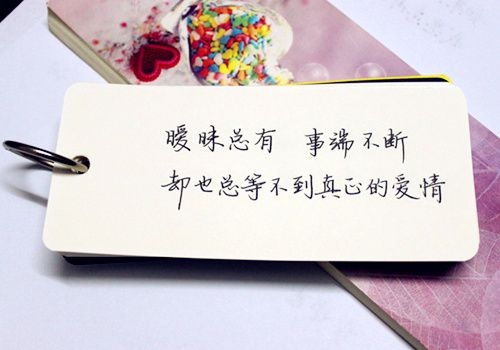 暧昧总有 事端不断
却也总等不到真正的爱情